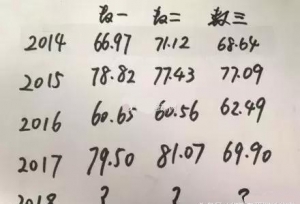 数一 数二 数三
2014 66.97 71.12 68.64
2015 78.82 77.43 77.09
2016 60.65 60.56 62.49
2017 79.50 81.07 69.90
2018 ? ? ?